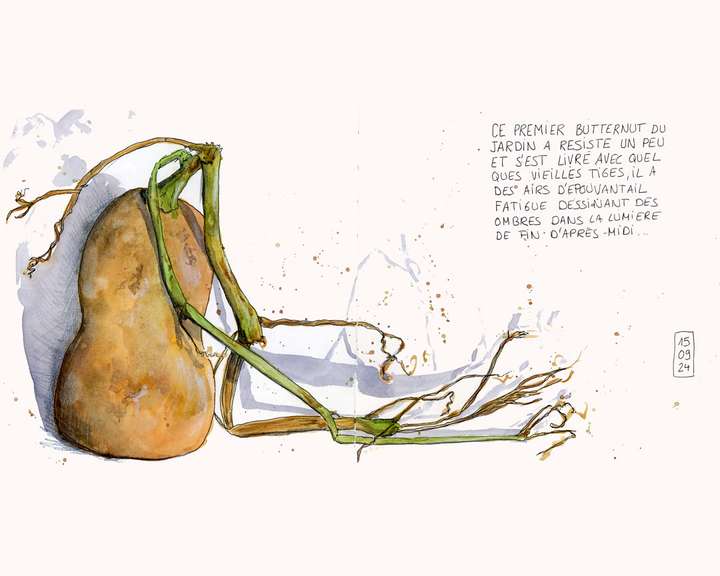 CE PREMIER BUTTERNUT DU
JARDIN A RESISTE UN PEU
ET S'EST LIVRÉ AVEC QUEL
QUES VIEILLES TIGES, IL A
DES AIRS D'EPOUVANTAIL
FATIGUE DESSINANT DES
OMBRES DANS LA LUMIERE
DE FIN D'APRÈS-MIDI...
15
09
24